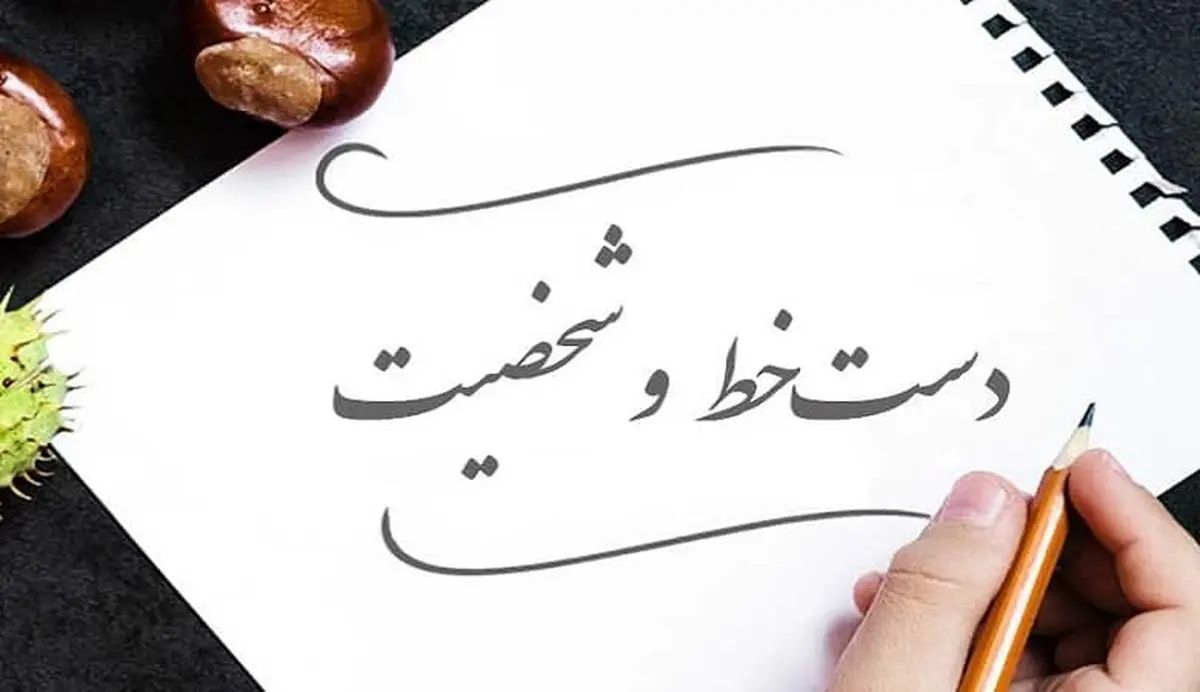 دست‌خط و شخصیت